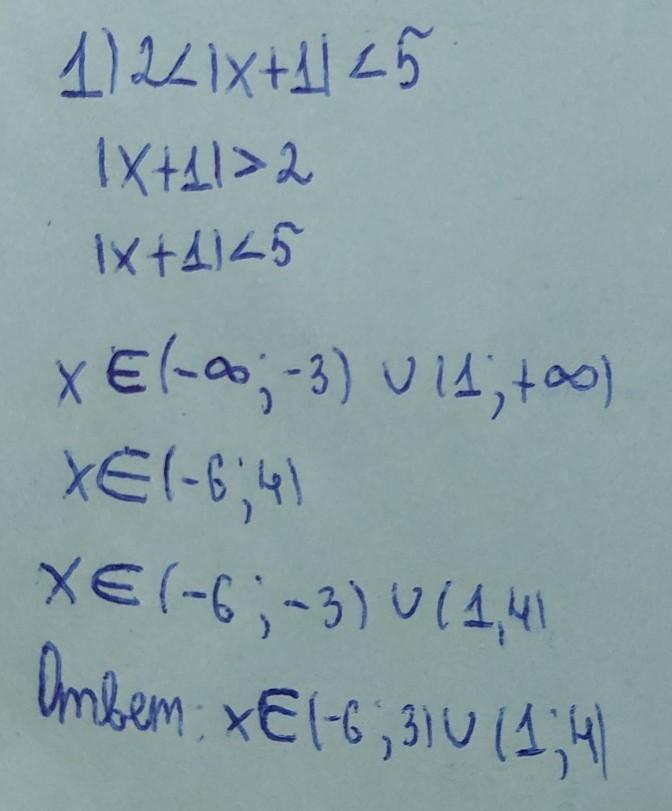 1) 2<|x+1|<5
|x+1|>2
|x+1|<5
x∈(-∞;-3)∪(1;+∞)
x∈(-6;4)
x∈(-6;-3)∪(1,4)
Ответ: x∈(-6;3)∪(1;4)